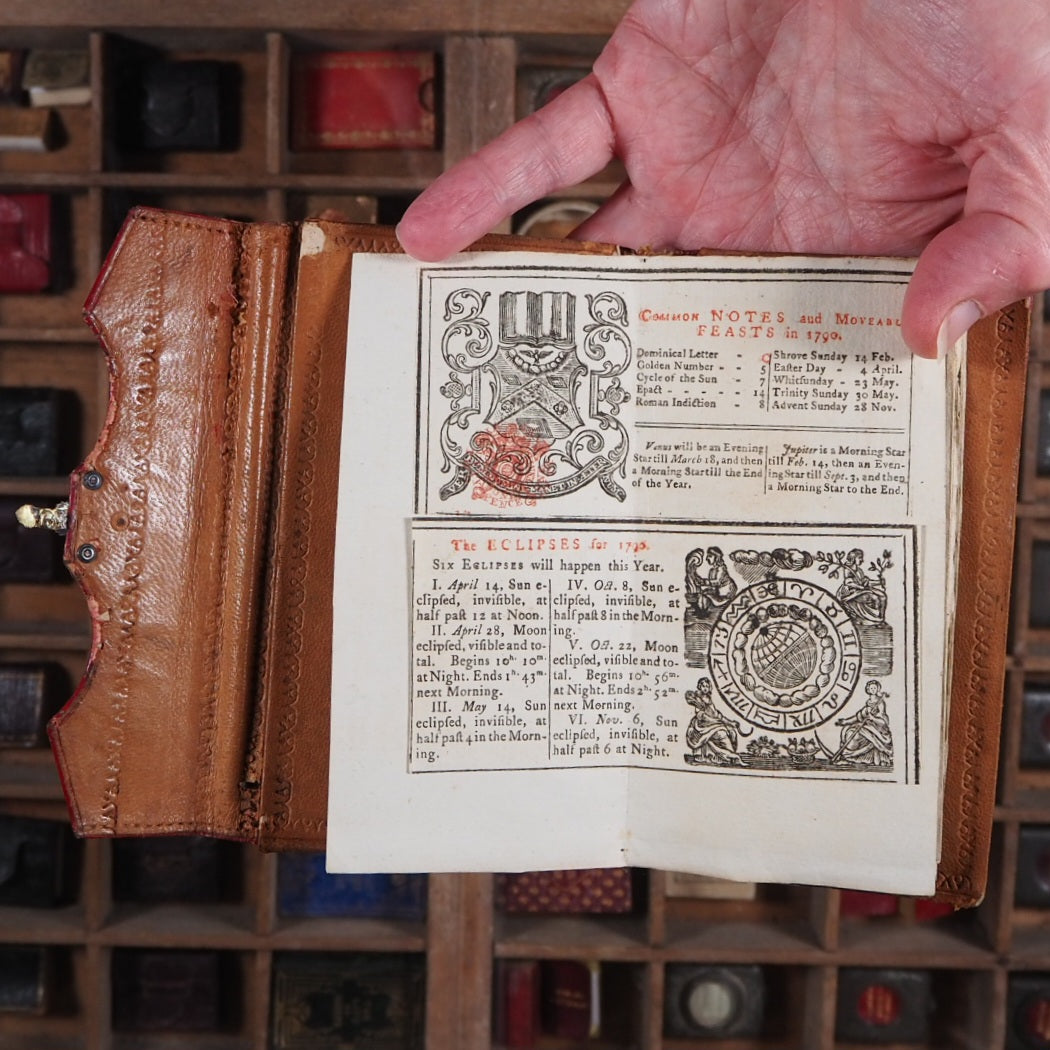 Common NOTES and Moveabl
FEASTS in 1790.
Dominical Letter - C
Golden Number - - 5
Cycle of the Sun - 7
Epact - - - - - 14
Roman Indiction - 8
Shrove Sunday 14 Feb.
Eaſter Day - 4 April.
Whitſunday - 23 May.
Trinity Sunday 30 May.
Advent Sunday 28 Nov.
Venus will be an Evening
Star till March 18, and then
a Morning Star till the End
of the Year.
Jupiter is a Morning Star
till Feb. 14, then an Even-
ing Star till Sept. 3, and then
a Morning Star to the End.
The ECLIPSES for 1790.
Six Eclipses will happen this Year.
I. April 14, Sun e-
clipſed, inviſible, at
half paſt 12 at Noon.
II. April 28, Moon
eclipſed, viſible and to-
tal. Begins 10h. 10m.
at Night. Ends 1h. 43m.
next Morning.
III. May 14, Sun
eclipſed, inviſible, at
half paſt 4 in the Morn-
ing.
IV. Oct. 8, Sun e-
clipſed, inviſible, at
half paſt 8 in the Morn-
ing.
V. Oct. 22, Moon
eclipſed, viſible and to-
tal. Begins 10h. 56m.
at Night. Ends 2h. 52m.
next Morning.
VI. Nov. 6, Sun
eclipſed, inviſible, at
half paſt 6 at Night.